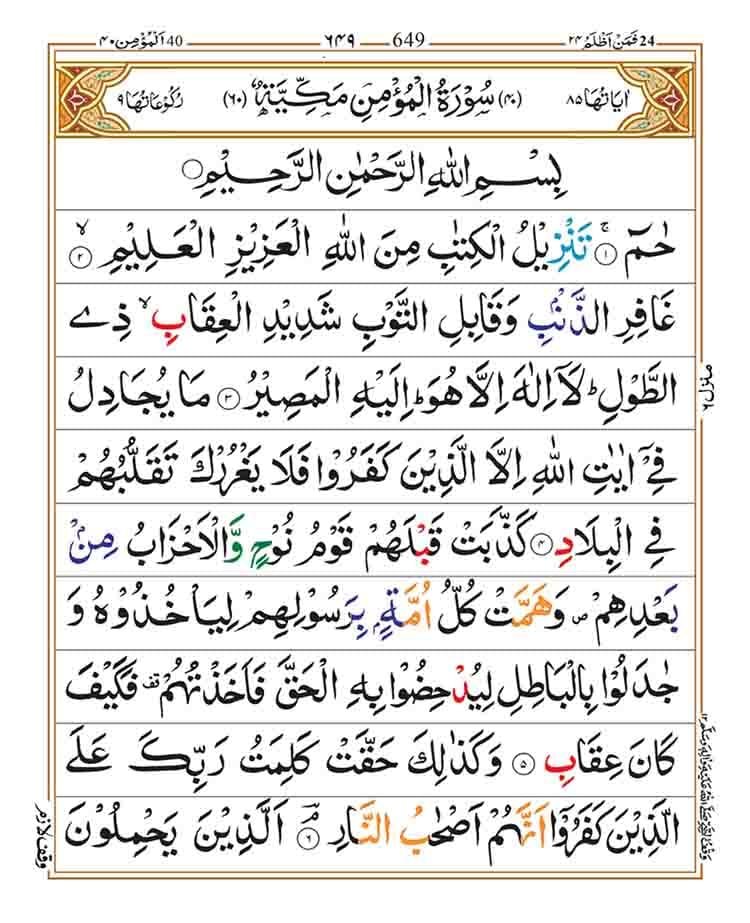 24 فَمَنْ اَظْلَمُ ۲۴ — 649 — ۶۴۹ — 40 اَلْمُؤْمِن ۴۰
اٰيَاتُهَا ۸۵ (۴۰) سُوْرَةُ الْمُؤْمِنِ مَكِّيَّةٌ (۶۰) رُكُوْعَاتُهَا ۹
بِسْمِ اللهِ الرَّحْمٰنِ الرَّحِيْمِ
حٰمٓ ۚ ۱ تَنْزِيْلُ الْكِتٰبِ مِنَ اللهِ الْعَزِيْزِ الْعَلِيْمِ ۙ ۲
غَافِرِ الذَّنْۢبِ وَقَابِلِ التَّوْبِ شَدِيْدِ الْعِقَابِ ۙ ذِے
الطَّوْلِ ؕ لَاۤ اِلٰهَ اِلَّا هُوَ ؕ اِلَيْهِ الْمَصِيْرُ ۳ مَا يُجَادِلُ
فِيْۤ اٰيٰتِ اللهِ اِلَّا الَّذِيْنَ كَفَرُوْا فَلَا يَغْرُرْكَ تَقَلُّبُهُمْ
فِي الْبِلَادِ ۴ كَذَّبَتْ قَبْلَهُمْ قَوْمُ نُوْحٍ وَّالْاَحْزَابُ مِنْۢ
بَعْدِهِمْ ۪ وَهَمَّتْ كُلُّ اُمَّةٍۭ بِرَسُوْلِهِمْ لِيَاْخُذُوْهُ وَ
جٰدَلُوْا بِالْبَاطِلِ لِيُدْحِضُوْا بِهِ الْحَقَّ فَاَخَذْتُهُمْ ۫ فَكَيْفَ
كَانَ عِقَابِ ۵ وَكَذٰلِكَ حَقَّتْ كَلِمَتُ رَبِّكَ عَلَے
الَّذِيْنَ كَفَرُوْۤا اَنَّهُمْ اَصْحٰبُ النَّارِ ۘ ۶ اَلَّذِيْنَ يَحْمِلُوْنَ
منزل ۶
وقف لازم